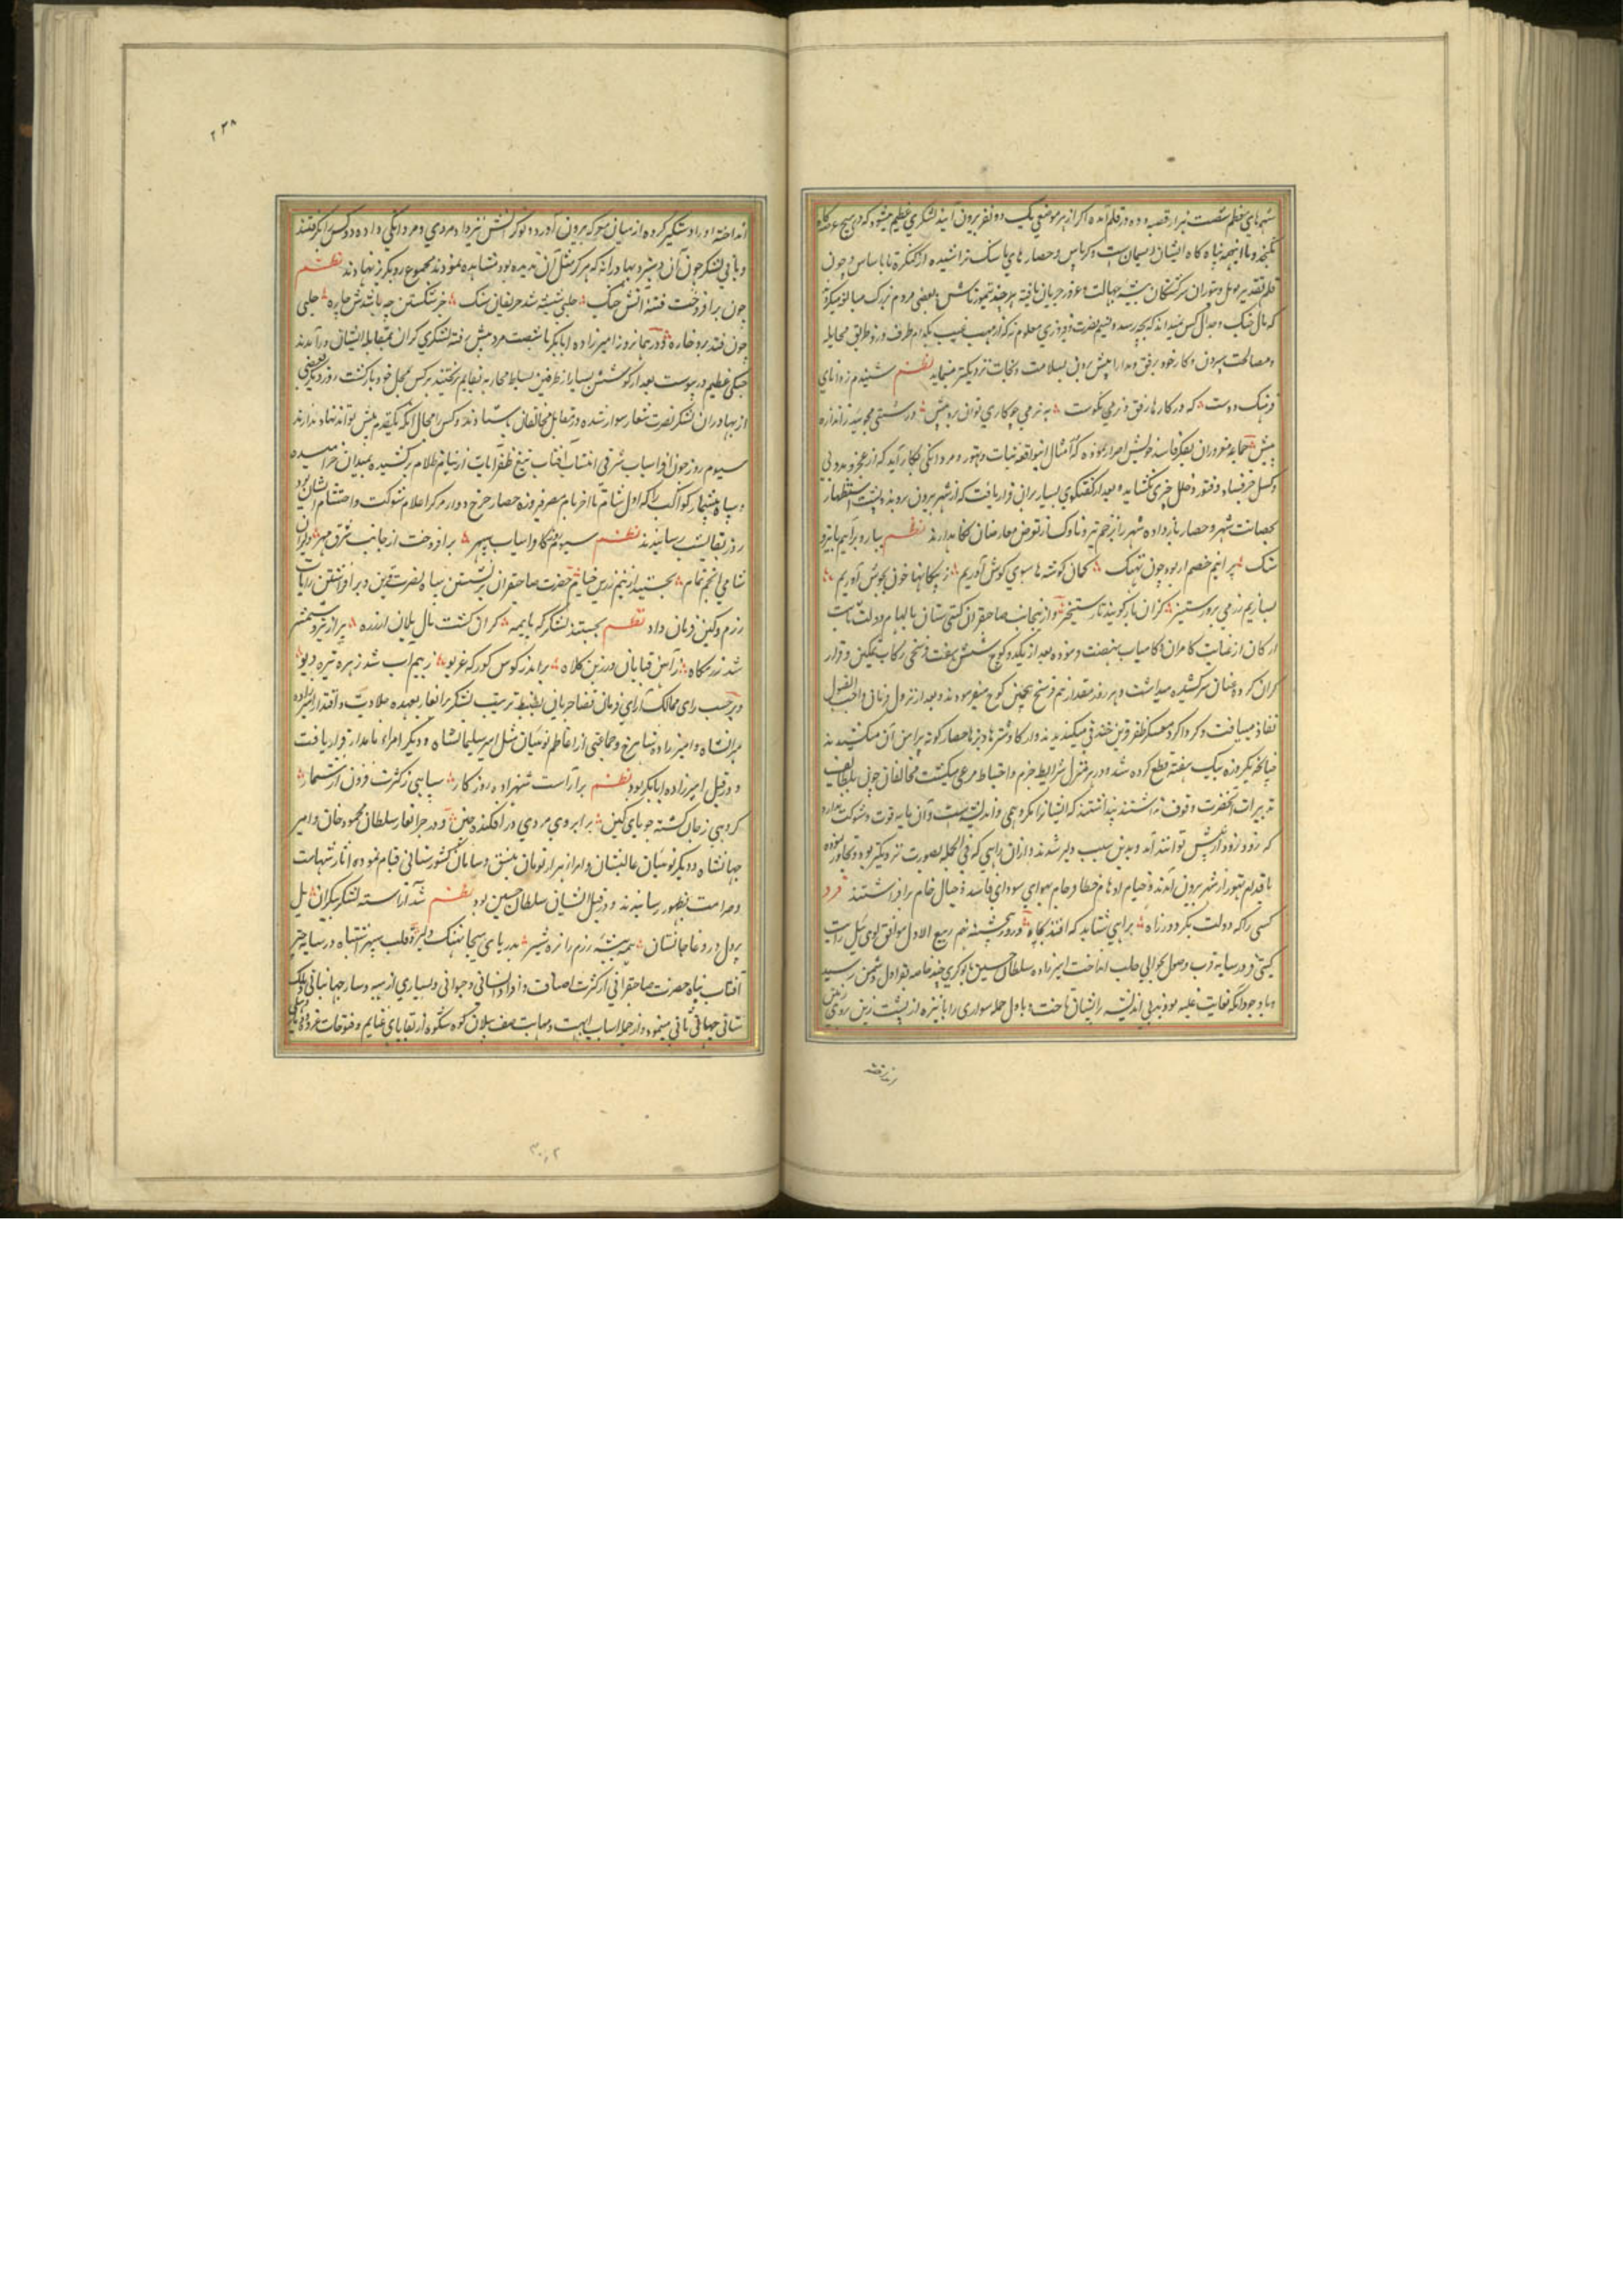 شهرهای معظم شصت هزار قصبه و ده در قلم آمده اگر از هر موضعی یک دو نفر بیرون آیند لشکری عظیم میشود که در هیچ عرصه گاه
نگنجد و با اینهمه پناه گاه ایشان ریسمان است و کرباس و حصارهای ما سنگ تراشیده از کنگره تا باساس و چون
قلم تقدیر بر تهور آن سرگشتگان بیشه جهالت و غرور جریان یافته هر چند تیمورتاش و بعضی مردم بزرگ مبالغه میکردند
که مآل جنگ و جدال کس نمیداند که بچه رسد و نسیم نصرت و فیروزی معلوم نه که از مهب غیب بکدام طرف وزد و طریق مجامله
و مصالحت سپردن و کار خود برفق و مدارا پیش بردن بسلامت و نجات نزدیکتر مینماید نظم شنیدم ز دانای
فرهنگ دوست که در کارها رفق و نرمی نکوست به نرمی چو کاری توان برد پیش درشتی مجوئید ز اندازه
بیش جماعت مغروران بفکر فاسد خویش اصرار نموده که امثال این واقعه ثبات و تهور و مردانگی بکار آید که از عجز و بددلی
و کسل جز فساد و فتور و خلل چیزی نگشاید و بعد از گفتگوی بسیار بران قرار یافت که از شهر بیرون نروند و پشت استظهار
بحصانت شهر و حصار باز داده شهر را بزخم تیر و ناوک از تعرض معارضان نگاه دارند نظم بباره برآییم با تیر و
سنگ برانیم خصم ار بود چون نهنگ کمان گوشه ها سوی گوش آوریم ز پیکانها خون بجوش آوریم
بسازیم رزمی بروز ستیز کزان باز گویند تا رستخیز و از ینجانب صاحبقران گیتی ستان بالهام دولت ثابت
ارکان از عنتاب کامران و کامیاب نهضت فرموده بعد از یکدو کوچ شش هفت فرسخی رکاب تمکین و وقار
گران کرده عنان سرکشیده میداشت و هر روز مقدار نیم فرسخ بیش کوچ نمیفرمودند و بعد از نزول فرمانی واجب القبول
نفاذ مییافت و گرداگرد معسکر ظفر قرین خندقی میکندیدند و از گاو شترها دیزها حصار گونه پیرامن آن میکشیدند
چنانکه یکروزه بیک هفته قطع کرده شد و در هر منزل شرایط حزم و احتیاط مرعی میگشت مخالفان چون بلطایف
تدبیرات آنحضرت وقوف نداشتند پنداشتند که ایشانرا مگر وهمی و اندیشه هست و آن مایه قوت و شوکت ندارند
که زود زود از پیش توانند آمد و بدین سبب دلیر شدند و از آن رایی که فی الجمله بصورت نزدیکتر بود تجاوز نموده
باقدام تهور از شهر بیرون آمدند و خیام اوهام خطا و خام بهوای سودای فاسد و خیال خام برافراشتند فرد
کسی را که دولت بگردد ز راه براهی شتابد که افتد بچاه و روز پنجشنبه نهم ربیع الاول موافق لوی ئیل رایت
گیتی فروز سایه قرب وصول بحوالی حلب انداخت امیرزاده سلطان حسین با نوکری چند خاصه بقراول دشمن رسید
و با وجود آنکه بغایت غلبه بودند بی اندیشه بر ایشان تاخت و باول حمله سواری را با نیزه از پشت زین روی زمین
۲۳۸
انداخته او را دستگیر کرده از میان معرکه بیرون آورد و نوکرانش نیز داد مردی و مردانگی داده دو کس را بگرفتند
و باقی لشکر چون آن دستبرد بهادرانه که هرگز مثل آن ندیده بودند مشاهده نمودند مجموع رو بگریز نهادند نظم
چون برافروخت فتنه آتش جنگ حلبی شیشه شد حریفان سنگ جز شکستن چه باشدش چاره حلبی
چون فتد برو خاره و در همان روز امیرزاده ابابکر با شصت مرد پیش رفته لشکری گران بمقابله ایشان درآمدند
جنگی عظیم در پیوست بعد از کوشش بسیار از طرفین بساط محاربه بقایم برنختند هر کس بمحل خود بازگشت روز دیگر بعضی
از بهادران لشکر نصرت شعار سوار شده در مقابل مخالفان باستادند و کس را مجال آنکه یکقدم پیش تواند نهاد ندادند
سیوم روز چون افراسیاب شرقی انتساب آفتاب تیغ ظفر آیات از نیام ظلام برکشیده بمیدان خرامیده
و سپاه بیشمار کواکب را که اول شام تا آخر بام معمر فیروزه حصار چرخ دوار مرکز اعلام شوکت و احتشام ایشان بود
روز بقا بشب رسانیدند نظم سیوم روز کافراسیاب سپهر برافروخت از جانب شرق مهر و لیران
شامی انجم تمام بجستند از بیم زرین خیام حضرت صاحبقران برنشستن سپاه نصرت قرین و برافراشتن رایات
رزم و کین فرمان داد نظم بجستند لشکر که با بیمه کران گشت بال یلان از زره پر از ترک شمشیر
شد رزمگاه ز آهن قبایان و زرین کلاه برآمد ز کوس کورکه غریو ز بیم آب شد زهره تیره دیو
و بر حسب رای ممالک آرای فرمان قضا جریان بضبط ترتیب لشکر برانغار بعهده جلادت و اقتدار امیرزاده
میرانشاه و امیرزاده شاهرخ و جماعتی از اعاظم نوئینان مثل امیر سلیمانشاه و دیگر امراء نامدار قرار یافت
و در قبل امیرزاده ابابکر بود نظم برآراست شهزاده روزگار سپاهی ز کثرت فزون از شمار
گروهی ز جان گشته جویای کین برابروی مردی در افکنده چین و در جرانغار سلطان محمود خان و امیر
جهانشاه و دیگر نوئینان عالیشان و امراء هزار تومان بنسق و سامان کشورستانی قیام نموده آثار شهامت
و صرامت بظهور رسانیدند و در قبل ایشان سلطان حسین بود نظم شد آراسته لشکر بیکران یل
پردل و رو غا جانستان همه بیشه رزم را نره شیر بدریای هیجا نهنگ دلیر و قلب سپهر اشتباه در سایه چتر
آفتاب پناه حضرت صاحبقرانی از کثرت اصناف و افراد انسانی و حیوانی و بسیاری از سپه و ساز جهانبانی و ملک
ستانی جهانی ثانی مینمود و از جمله اسباب ابهت و مهابت صف پیلان کوه شکوه از بقایای غنایم و فتوحات غزو
۳۰۲